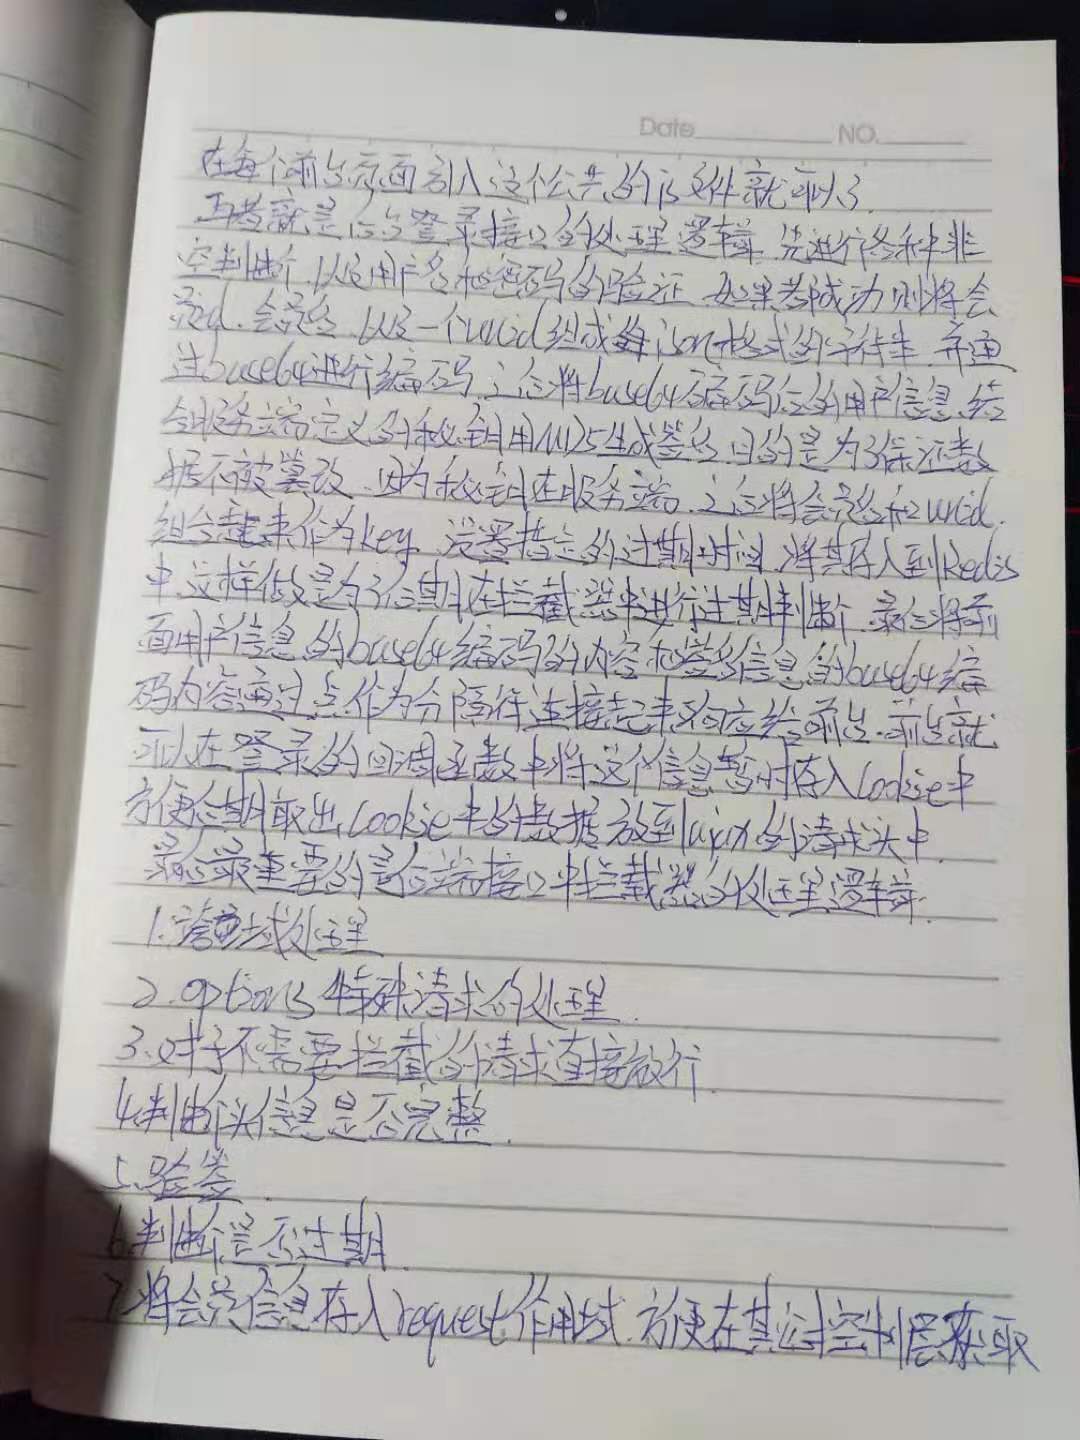 Date NO.
在每个前台页面引入这个公共的js文件就可以了.
再者就是后台登录接口的处理逻辑 先进行各种非
空判断 以及用户名和密码的验证 如果都成功则将会
员id.会员名 以及一个uuid组成json格式的字符串 并通
过base64进行编码.之后将base64编码后的用户信息.结
合服务端定义的秘钥用MD5生成签名 目的是为了保证数
据不被篡改.因为秘钥在服务端.之后将会员名和uuid.
组合起来作为key 设置指定的过期时间 将其存入到Redis
中 这样做是为了后期在拦截器中进行过期判断.最后将前
面用户信息的base64编码的内容和签名信息的base64编
码内容通过点作为分隔符连接起来响应给前台.前台就
可以在登录的回调函数中将这个信息暂时存入Cookie中
方便后期取出Cookie中的数据放到ajax的请求头中.
最后最重要的是后端接口中拦截器的处理逻辑.
1.跨域处理
2.options特殊请求的处理.
3.对于不需要拦截的请求直接放行.
4.判断头信息是否完整.
5.验签.
6.判断是否过期.
7.将会员信息存入request作用域.方便在其他控制层获取